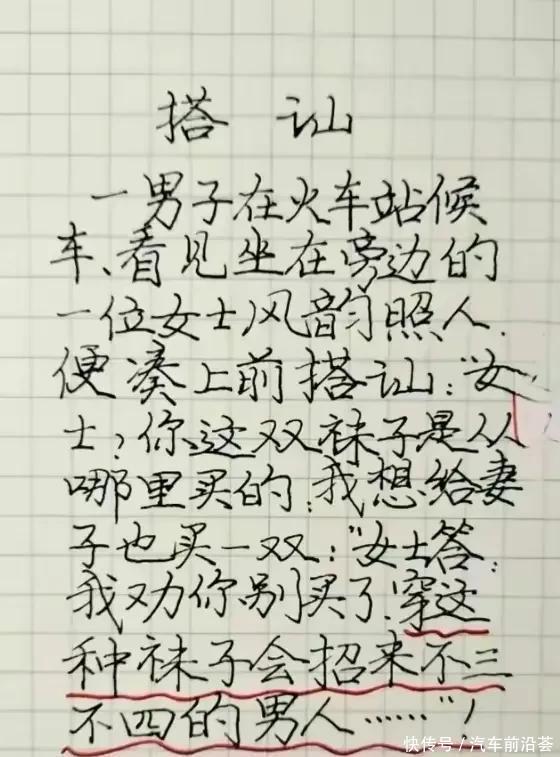 搭讪
一男子在火车站候
车、看见坐在旁边的
一位女士风韵照人.
便凑上前搭讪:"女
士,你这双袜子是从
哪里买的,我想给妻
子也买一双:"女士答:
我劝你别买了,穿这
种袜子会招来不三
不四的男人……"
快传号/汽车前沿荟